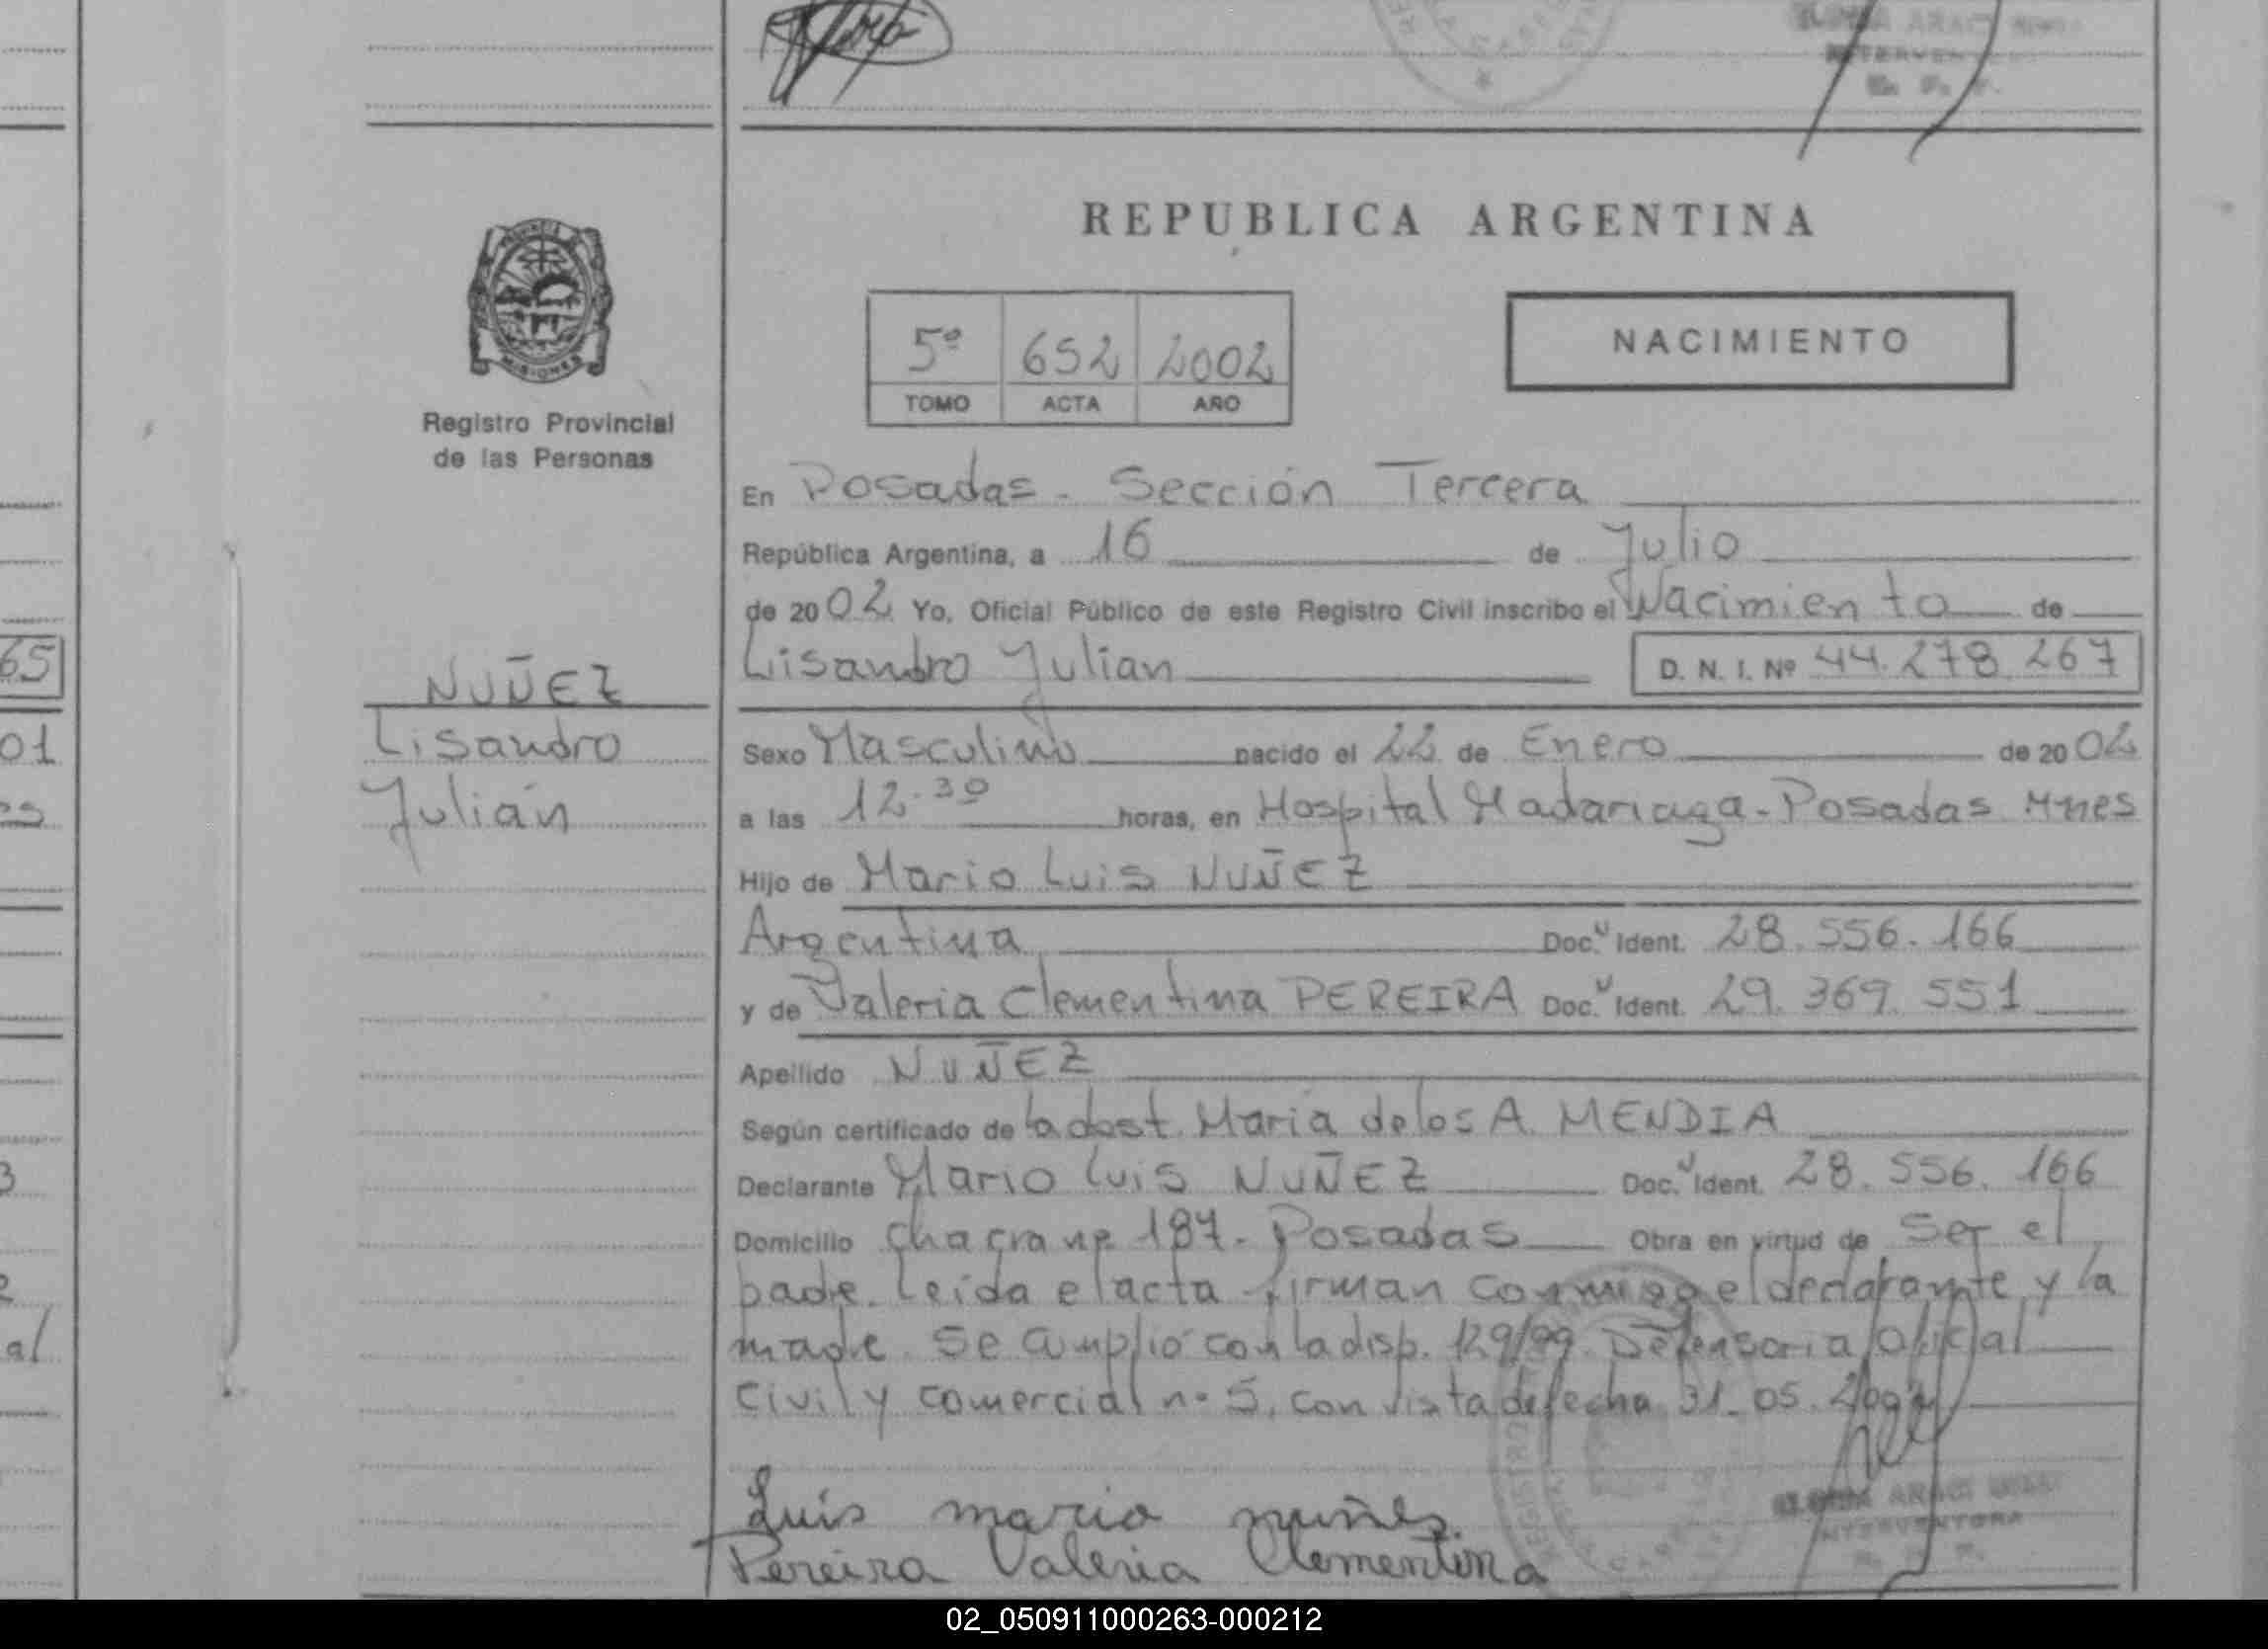 REPUBLICA ARGENTINA
PROVINCIA DE
MISIONES
Registro Provincial
de las Personas
5º 652 2002
TOMO ACTA AÑO
NACIMIENTO
En Posadas - Sección Tercera
República Argentina, a 16 de Julio
de 2002 Yo, Oficial Público de este Registro Civil inscribo el Nacimiento de
Lisandro Julian D. N. I. Nº 44.278.267
NUÑEZ
Lisandro
Julián
Sexo Masculino nacido el 22 de Enero de 2002
a las 12.30 horas, en Hospital Madariaga - Posadas Mnes
Hijo de Mario Luis NUÑEZ
Argentina Doc. Ident. 28.556.166
y de Valeria Clementina PEREIRA Doc. Ident. 29.369.551
Apellido NUÑEZ
Según certificado de la obst. Maria de los A. MENDIA
Declarante Mario Luis NUÑEZ Doc. Ident. 28.556.166
Domicilio Chacra nº 187 - Posadas Obra en virtud de ser el
padre. Leída el acta firman conmigo el declarante y la
madre. Se amplió con la disp. 129/99. Defensoria Oficial
Civil y Comercial nº 5, con vista de fecha 31.05.2002
Luis mario nuñes.
Pereira Valeria Clementina
INTERVENTORA
65
01
es
3
2
al
02_050911000263-000212